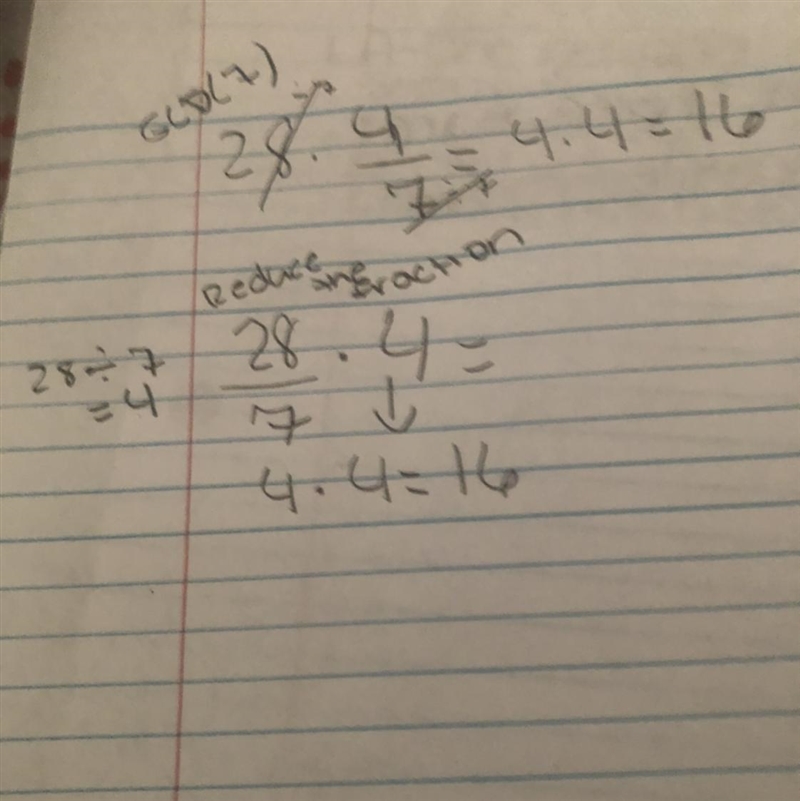 GCD(7) ÷7
28 · 4/7 ÷7 = 4 · 4 = 16
Reduce the fraction
28 ÷ 7 = 4
28/7 · 4 =
↓
4 · 4 = 16